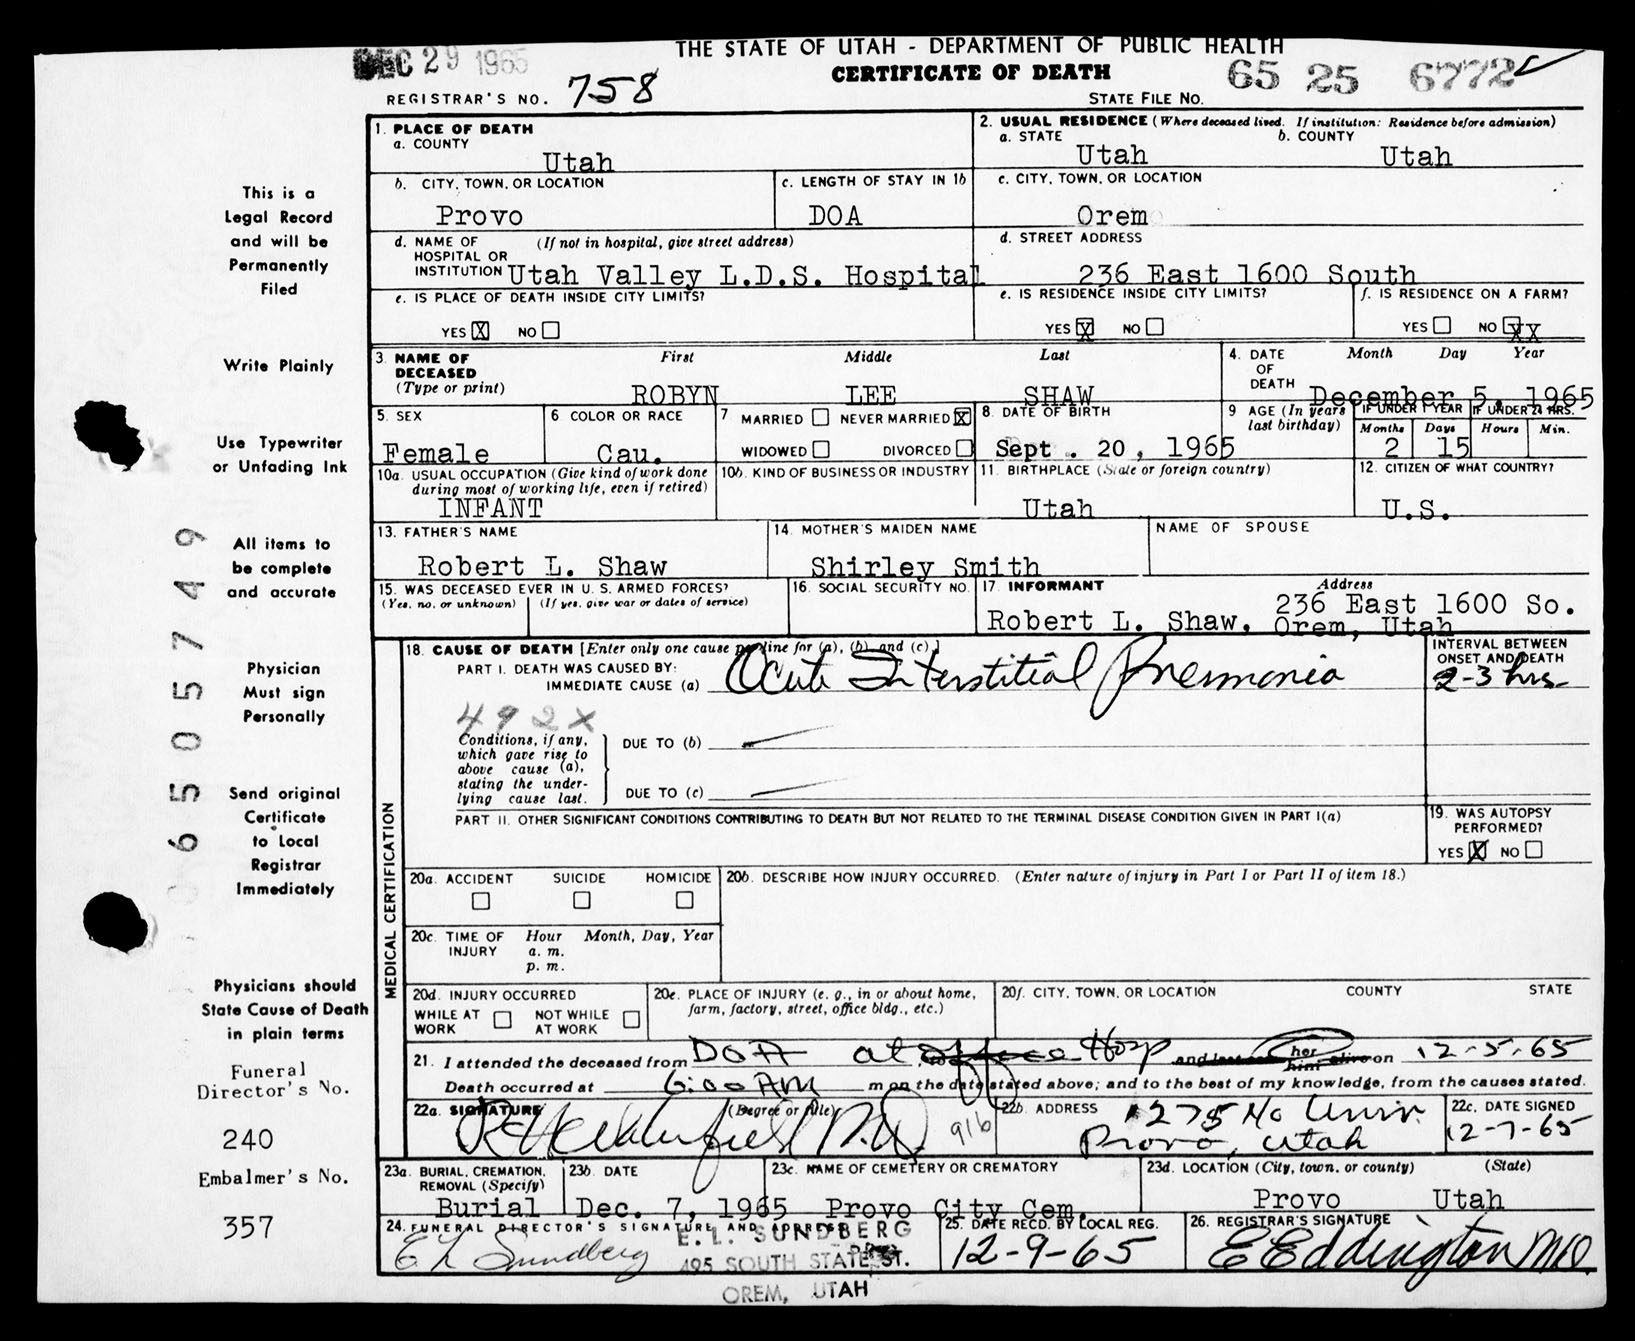 THE STATE OF UTAH - DEPARTMENT OF PUBLIC HEALTH
DEC 29 1965
CERTIFICATE OF DEATH
65 25 6772
REGISTRAR'S NO. 758
STATE FILE NO.
1. PLACE OF DEATH
a. COUNTY
Utah
2. USUAL RESIDENCE (Where deceased lived. If institution: Residence before admission)
a. STATE
Utah
b. COUNTY
Utah
b. CITY, TOWN, OR LOCATION
Provo
c. LENGTH OF STAY IN 1b
DOA
c. CITY, TOWN, OR LOCATION
Orem
d. NAME OF HOSPITAL OR INSTITUTION (If not in hospital, give street address)
Utah Valley L.D.S. Hospital
d. STREET ADDRESS
236 East 1600 South
e. IS PLACE OF DEATH INSIDE CITY LIMITS?
YES X NO
e. IS RESIDENCE INSIDE CITY LIMITS?
YES X NO
f. IS RESIDENCE ON A FARM?
YES NO XX
3. NAME OF DECEASED (Type or print)
First Middle Last
ROBYN LEE SHAW
4. DATE OF DEATH
Month Day Year
December 5, 1965
5. SEX
Female
6 COLOR OR RACE
Cau.
7 MARRIED NEVER MARRIED X
WIDOWED DIVORCED
8. DATE OF BIRTH
Sept. 20, 1965
9 AGE (In years last birthday)
IF UNDER 1 YEAR
Months Days
2 15
IF UNDER 24 HRS.
Hours Min.
10a. USUAL OCCUPATION (Give kind of work done during most of working life, even if retired)
INFANT
10b. KIND OF BUSINESS OR INDUSTRY
11. BIRTHPLACE (State or foreign country)
Utah
12. CITIZEN OF WHAT COUNTRY?
U.S.
13. FATHER'S NAME
Robert L. Shaw
14. MOTHER'S MAIDEN NAME
Shirley Smith
NAME OF SPOUSE
15. WAS DECEASED EVER IN U. S. ARMED FORCES?
(Yes, no, or unknown) (If yes, give war or dates of service)
16. SOCIAL SECURITY NO.
17. INFORMANT Address
Robert L. Shaw, 236 East 1600 So.
Orem, Utah
18. CAUSE OF DEATH [Enter only one cause per line for (a), (b), and (c).]
PART I. DEATH WAS CAUSED BY:
IMMEDIATE CAUSE (a) Acute Interstitial Pneumonia
INTERVAL BETWEEN ONSET AND DEATH
2-3 hrs.
492X
Conditions, if any, which gave rise to above cause (a), stating the underlying cause last.
DUE TO (b)
DUE TO (c)
PART II. OTHER SIGNIFICANT CONDITIONS CONTRIBUTING TO DEATH BUT NOT RELATED TO THE TERMINAL DISEASE CONDITION GIVEN IN PART I(a)
19. WAS AUTOPSY PERFORMED?
YES X NO
MEDICAL CERTIFICATION
20a. ACCIDENT SUICIDE HOMICIDE
20b. DESCRIBE HOW INJURY OCCURRED. (Enter nature of injury in Part I or Part II of item 18.)
20c. TIME OF INJURY
Hour Month, Day, Year
a. m.
p. m.
20d. INJURY OCCURRED
WHILE AT WORK NOT WHILE AT WORK
20e. PLACE OF INJURY (e. g., in or about home, farm, factory, street, office bldg., etc.)
20f. CITY, TOWN, OR LOCATION COUNTY STATE
21. I attended the deceased from DOA at Hosp and last saw her him alive on 12-5-65
Death occurred at 6:00 AM m on the date stated above; and to the best of my knowledge, from the causes stated.
22a. SIGNATURE (Degree or title)
M.D.
916
22b. ADDRESS
1275 No Univ.
Provo, Utah
22c. DATE SIGNED
12-7-65
23a. BURIAL, CREMATION, REMOVAL (Specify)
Burial
23b. DATE
Dec. 7, 1965
23c. NAME OF CEMETERY OR CREMATORY
Provo City Cem.
23d. LOCATION (City, town, or county) (State)
Provo Utah
24. FUNERAL DIRECTOR'S SIGNATURE AND ADDRESS
E L Sundberg
E. L. SUNDBERG
495 SOUTH STATE ST.
OREM, UTAH
25. DATE RECD. BY LOCAL REG.
12-9-65
26. REGISTRAR'S SIGNATURE
E Eddington MD.
This is a
Legal Record
and will be
Permanently
Filed
Write Plainly
Use Typewriter
or Unfading Ink
All items to
be complete
and accurate
Physician
Must sign
Personally
Send original
Certificate
to Local
Registrar
Immediately
Physicians should
State Cause of Death
in plain terms
Funeral
Director's No.
240
Embalmer's No.
357
06505749